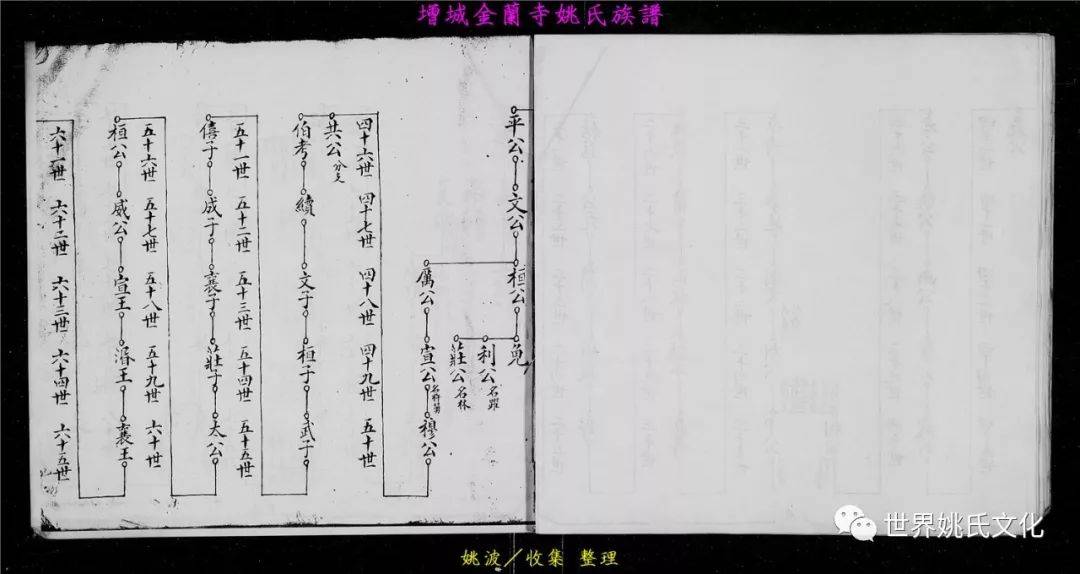 增城金蘭寺姚氏族譜
平公 文公 桓公 免
利公名躍
莊公名林
厲公 宣公 穆公
四十六世 四十七世 四十八世 四十九世 五十世
共公分支
伯考 續 文子 桓子 武子
五十一世 五十二世 五十三世 五十四世 五十五世
僖子 成子 襄子 莊子 太公
五十六世 五十七世 五十八世 五十九世 六十世
桓公 威公 宣王 湣王 襄王
六十一世 六十二世 六十三世 六十四世 六十五世
世界姚氏文化
姚波/收集 整理